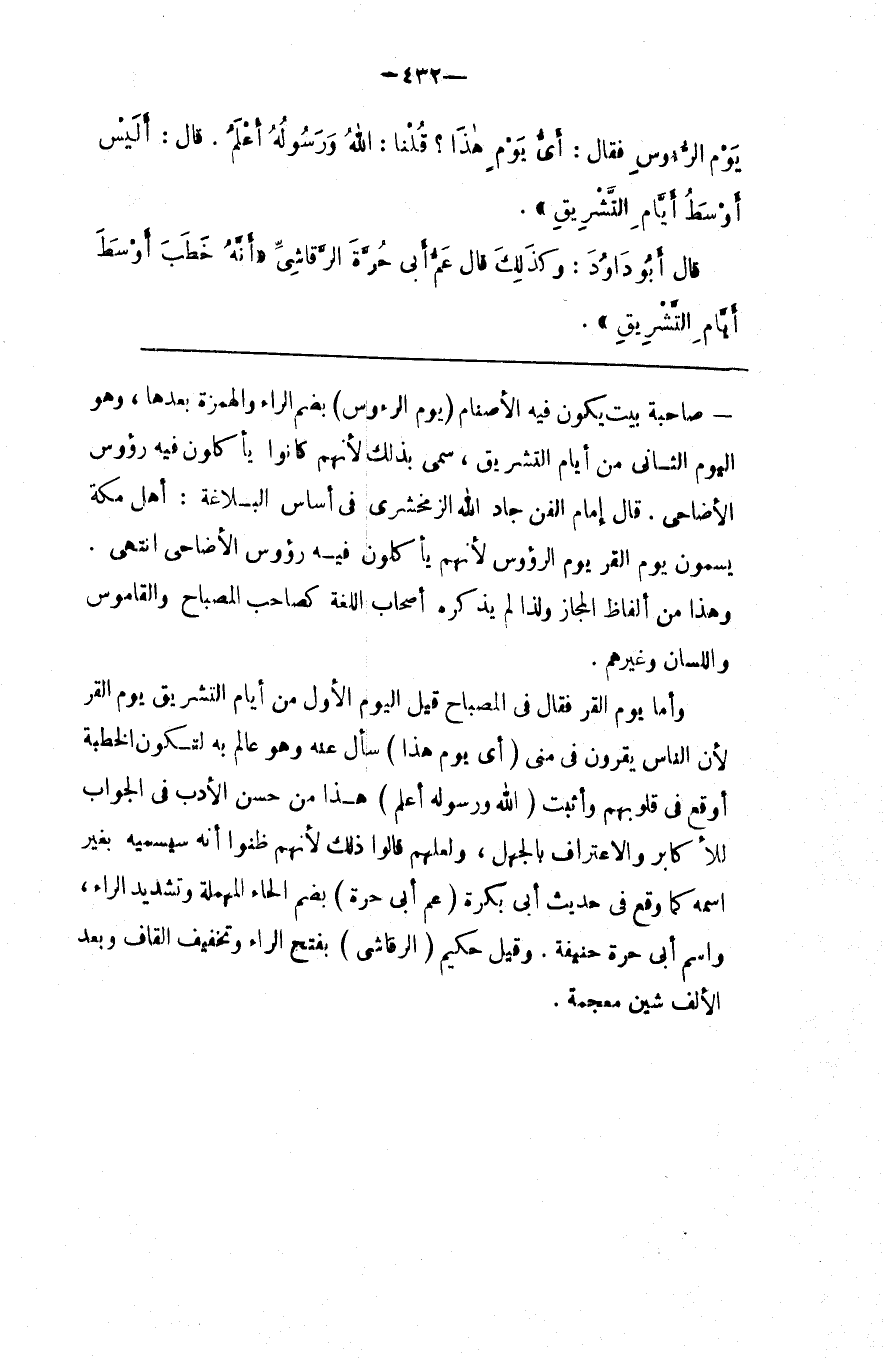 —٤٣٢—
يَوْم الرُّءوسِ فقال : أَىُّ يَوْمٍ هٰذَا ؟ قُلْنا : اللهُ وَرَسُولُهُ أعْلَمُ . قال : أَلَيْسَ
أَوْسَطُ أَيَّامِ التَّشْرِيقِ » .
قال أَبُو دَاوُدَ : وكَذَلِكَ قال عَمُّ أَبى حُرَّةَ الرَّقاشِىِّ «أَنَّهُ خَطَبَ أَوْسَطَ
أَيَّامِ التَّشْرِيقِ » .
— صاحبة بيت يكون فيه الأصنام (يوم الرءوس) بضم الراء والهمزة بعدها ، وهو
اليوم الثـانى من أيام التشريق ، سمى بذلك لأنهم كانوا يأكلون فيه رؤوس
الأضاحى . قال إمام الفن جاد الله الزمخشرى فى أساس البـلاغة : أهل مكة
يسمون يوم القر يوم الرؤوس لأنهم يأكلون فيـه رؤوس الأضاحى انتهى .
وهذا من ألفاظ المجاز ولذا لم يذكره أصحاب اللغة كصاحب المصباح والقاموس
واللسان وغيرهم .
وأما يوم القر فقال فى المصباح قيل اليوم الأول من أيام التشريق يوم القر
لأن الناس يقرون فى منى ( أى يوم هذا ) سأل عنه وهو عالم به لتـكون الخطبة
أوقع فى قلوبهم وأثبت ( الله ورسوله أعلم ) هـذا من حسن الأدب فى الجواب
للأكابر والاعتراف بالجهل ، ولعلهم قالوا ذلك لأنهم ظنوا أنه سيسميه بغير
اسمه كما وقع فى حديث أبى بكرة ( عم أبى حرة ) بضم الحاء المهملة وتشديد الراء ،
واسم أبى حرة حنيفة . وقيل حكيم ( الرقاشى ) بفتح الراء وتخفيف القاف وبعد
الألف شين معجمة .